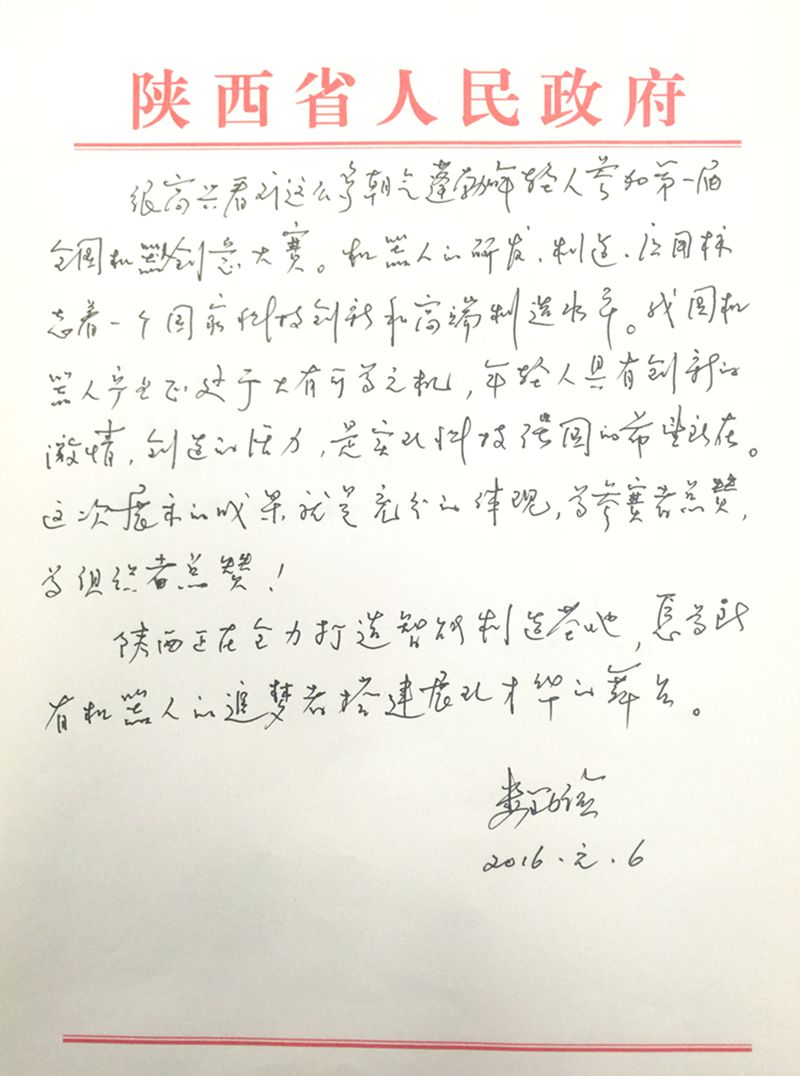 陕西省人民政府
很高兴看到这么多朝气蓬勃年轻人参加第一届
全国机器人创意大赛。机器人的研发、制造、应用标
志着一个国家科技创新和高端制造水平。我国机
器人产业正处于大有可为之机，年轻人具有创新的
激情，创造的活力，是实现科技强国的希望所在。
这次展示的成果就是充分的体现，为参赛者点赞，
为组织者点赞！
陕西正在全力打造智能制造基地，愿为所
有机器人的追梦者搭建展现才华的舞台。
娄勤俭
2016.元.6